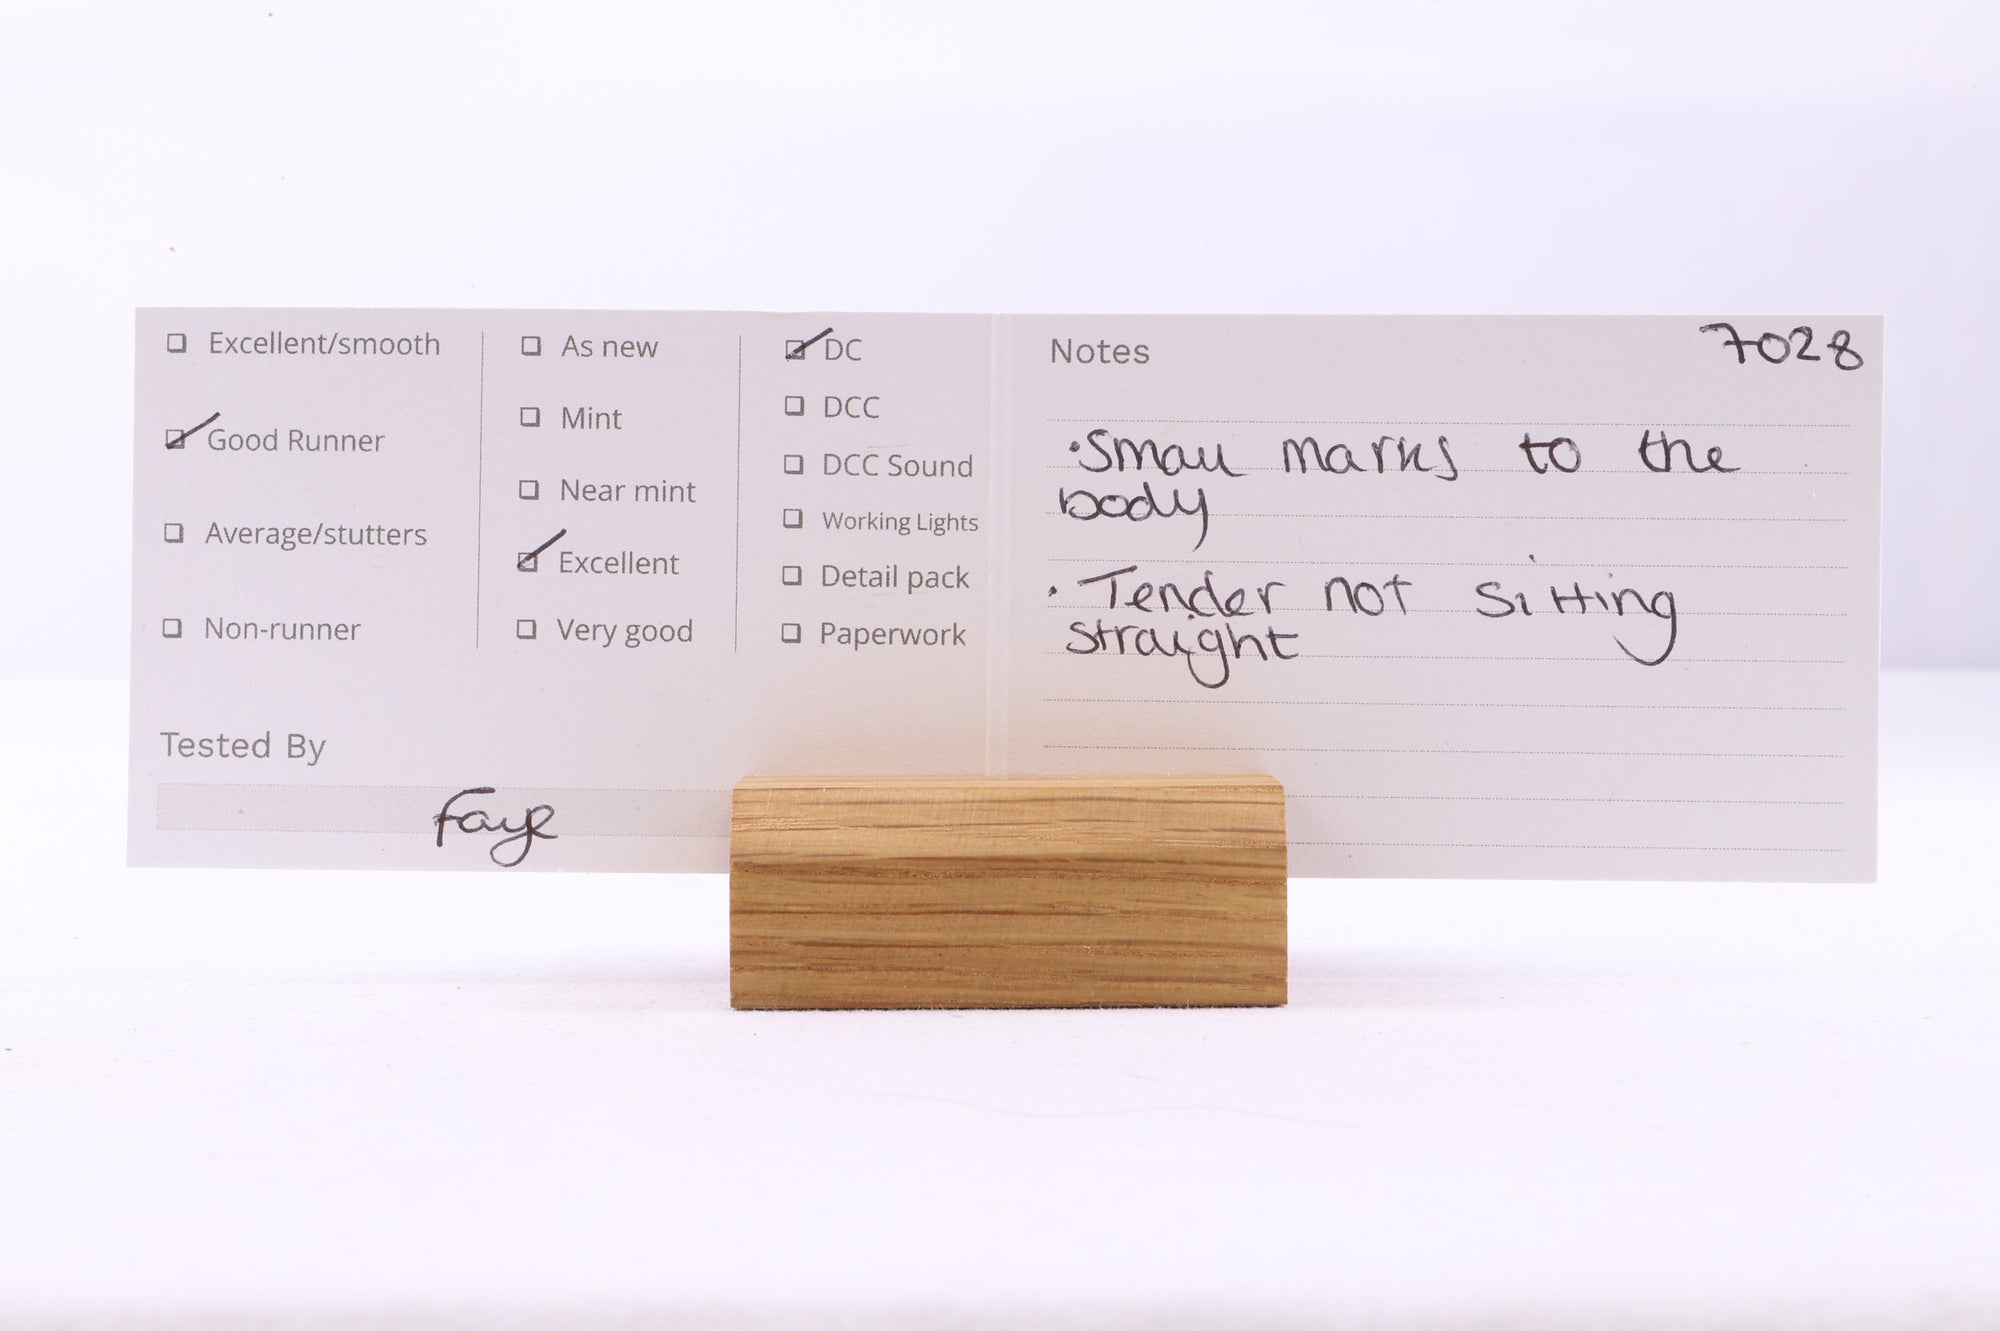 ☐ Excellent/smooth
☑ Good Runner
☐ Average/stutters
☐ Non-runner
☐ As new
☐ Mint
☐ Near mint
☑ Excellent
☐ Very good
☑ DC
☐ DCC
☐ DCC Sound
☐ Working Lights
☐ Detail pack
☐ Paperwork
Tested By
Faye
Notes
7028
·Small marks to the
body
· Tender not sitting
straight